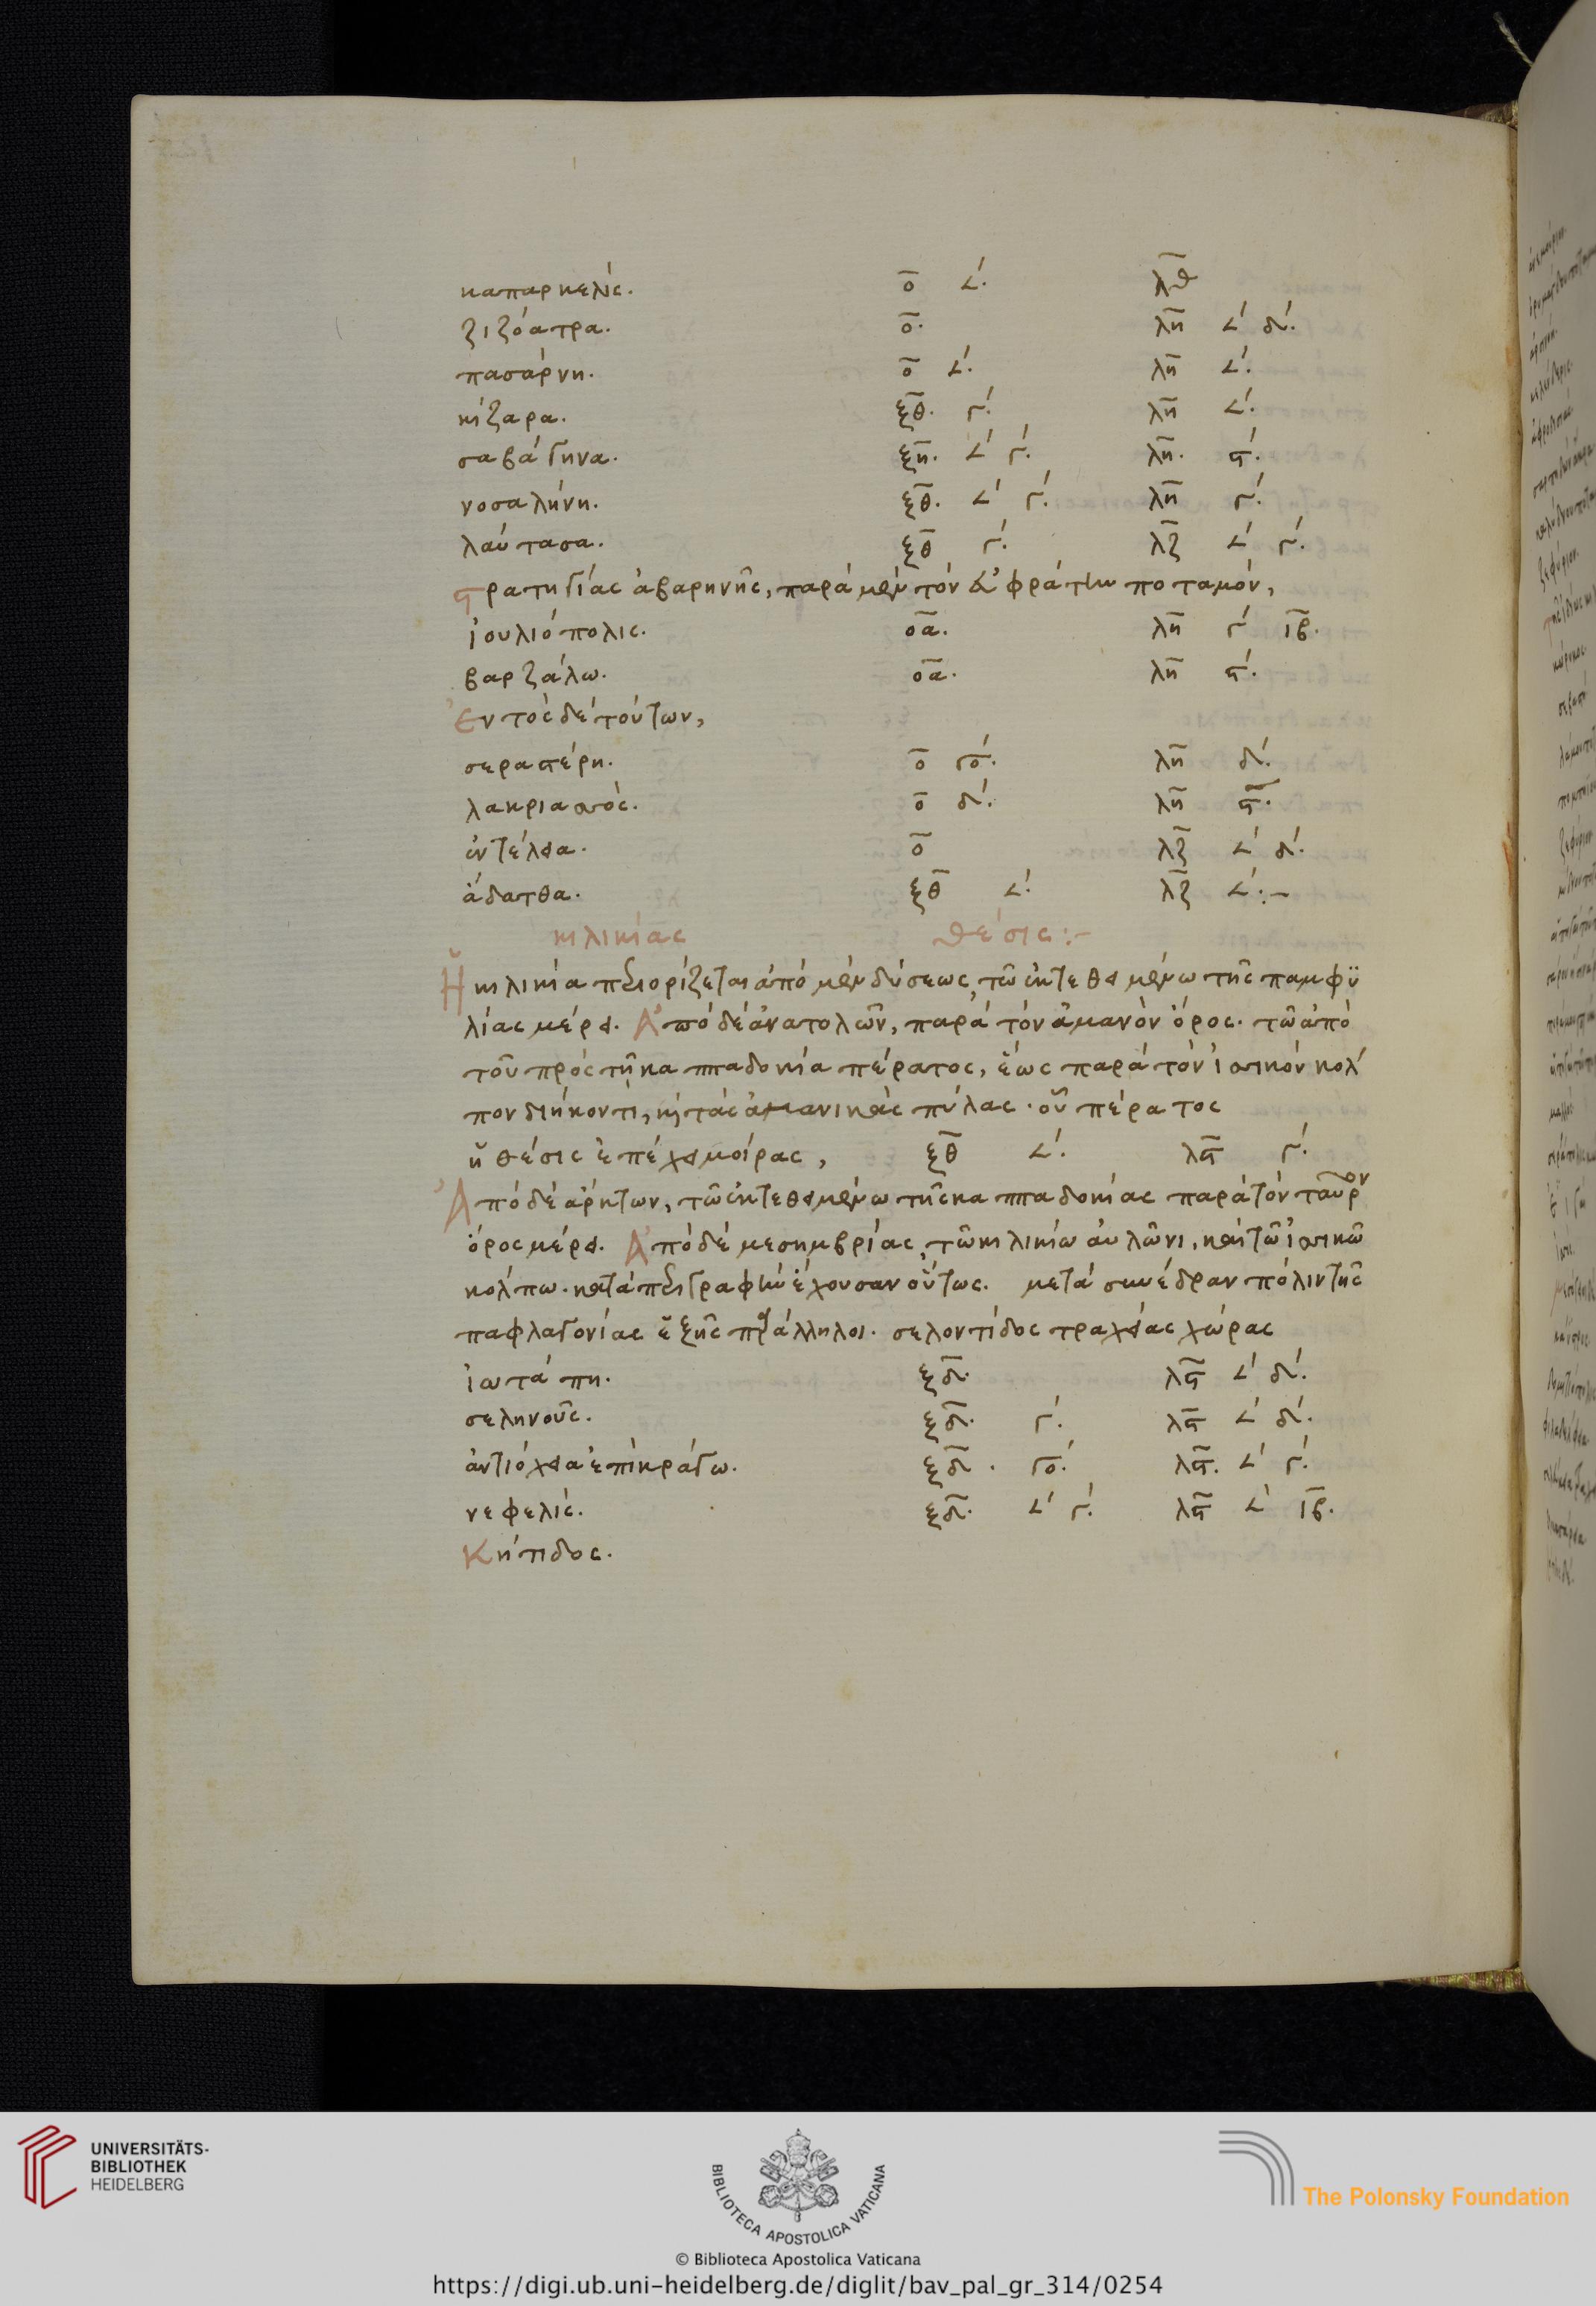 καπαρκελίς. ο̅ 𐅵′. λ̅θ̅
ζιζόατρα. ο̅. λη̅ 𐅵′ δ′.
πασάρνη. ο̅ 𐅵′. λη̅ 𐅵′.
κίζαρα. ξθ̅. γ′. λη̅ 𐅵′.
σαβάγηνα. ξη̅. 𐅵′ γ′. λη̅. ϛ′.
νοσαλήνη. ξθ̅. 𐅵′ γ′. λη̅ γ′.
λαύτασα. ξθ̅ γ′. λζ̅ 𐅵′ γ′.
στρατηγίας ἀβαρηνῆς, παρά μὲν τόν εὐφράτην ποταμόν,
ἰουλιόπολις. οα̅. λη̅ γ′ ιβ̅.
βαρζάλω. οα̅. λη̅ ϛ′.
Ἐντός δέ τούτων,
σεραστέρη. ο̅ γο′. λη̅ δ′.
λακριασσός. ο̅ δ′. λη̅ ϛ̅.
ἐντέλεια. ο̅ λζ̅ 𐅵′ δ′.
ἄδατθα. ξθ̅ 𐅵′. λζ̅ 𐅵′:–
κιλικίας θέσις:–
Ἡ κιλικία περιορίζεται ἀπό μὲν δύσεως, τῶ ἐκτεθειμένω τῆς παμφϋ
λίας μέρει. Ἀπό δέ ἀνατολῶν, παρά τόν ἀμανὸν ὄρος. τῶ ἀπό
τοῦ πρός τῆ καππαδοκία πέρατος, ἕως παρά τόν ἰσσικόν κολ
πον διήκοντι, κ τάς ἀμανικάς πύλας. οὗ πέρατος
ἡ θέσις ἐπέχει μοίρας, ξθ̅ 𐅵′. λϛ̅ γ′.
Ἀπό δέ ἄρκτων, τῶ ἐκτεθειμένω τῆς καππαδοκίας παρά τόν ταῦρον
ὄρος μέρει. Ἀπό δέ μεσημβρίας, τῶ κιλικίω αὐλῶνι, καί τῶ ἰσσικῶ
κόλπω. κατά περιγραφήν ἔχουσαν οὕτως. μετά συέδραν πόλιν τῆς
παφλαγονίας ἑξῆς παράλληλοι. σελοντίδος τραχείας χώρας
ἰωτάπη. ξδ̅. λϛ̅ 𐅵′ δ′.
σεληνοῦς. ξδ̅. γ′. λϛ̅ 𐅵′ δ′.
ἀντιόχεια ἐπί κράγω. ξδ̅. γο′. λϛ̅. 𐅵′ γ′.
νεφελίς. ξδ̅. 𐅵′ γ′. λϛ̅ 𐅵′ ιβ̅.
Κήτιδος.
UNIVERSITÄTS-
BIBLIOTHEK
HEIDELBERG
BIBLIOTECA APOSTOLICA VATICANA
The Polonsky Foundation
© Biblioteca Apostolica Vaticana
https://digi.ub.uni-heidelberg.de/diglit/bav_pal_gr_314/0254